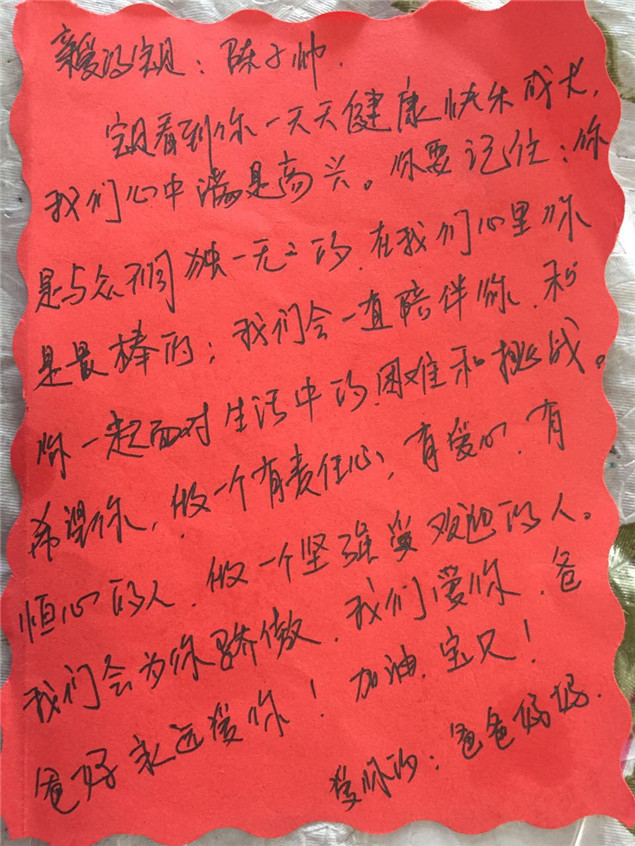 亲爱的宝贝：陈子帅.
宝贝看到你一天天健康快乐成长，
我们心中满是高兴。你要记住：你
是与众不同独一无二的.在我们心里你
是最棒的；我们会一直陪伴你.和
你一起面对生活中的困难和挑战。
希望你，做一个有责任心，有爱心.有
恒心的人.做一个坚强受欢迎的人。
我们会为你骄傲.我们爱你.爸
爸妈永远爱你！加油.宝贝！
爱你的：爸爸妈妈.